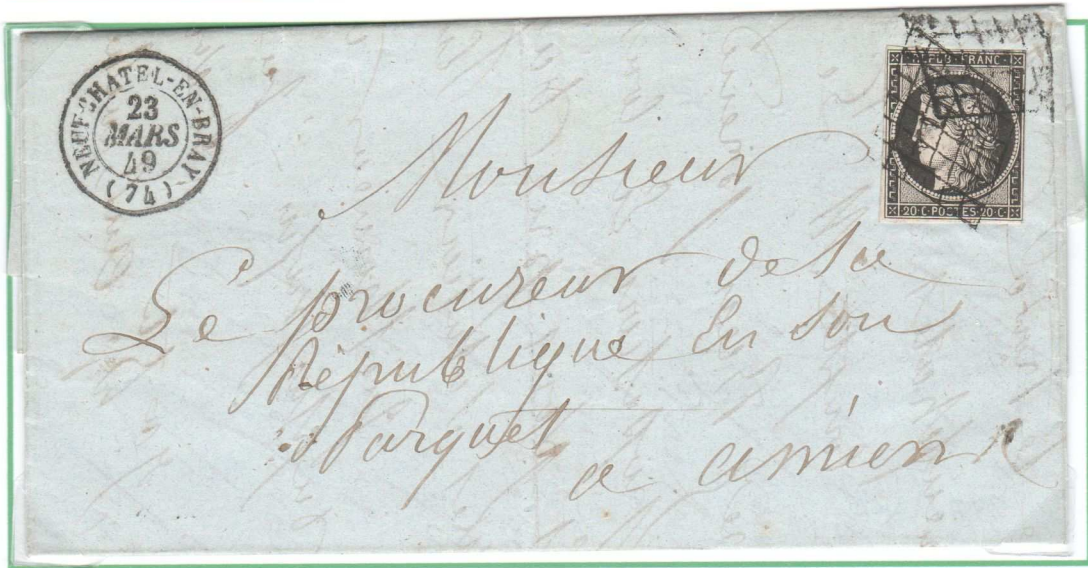 NEUFCHATEL-EN-BRAY
23
MARS
49
(74)
REPUB·FRANC·
20·C·POSTES·20·C·
Monsieur
Le procureur de la
République En son
Parquet
a amiens